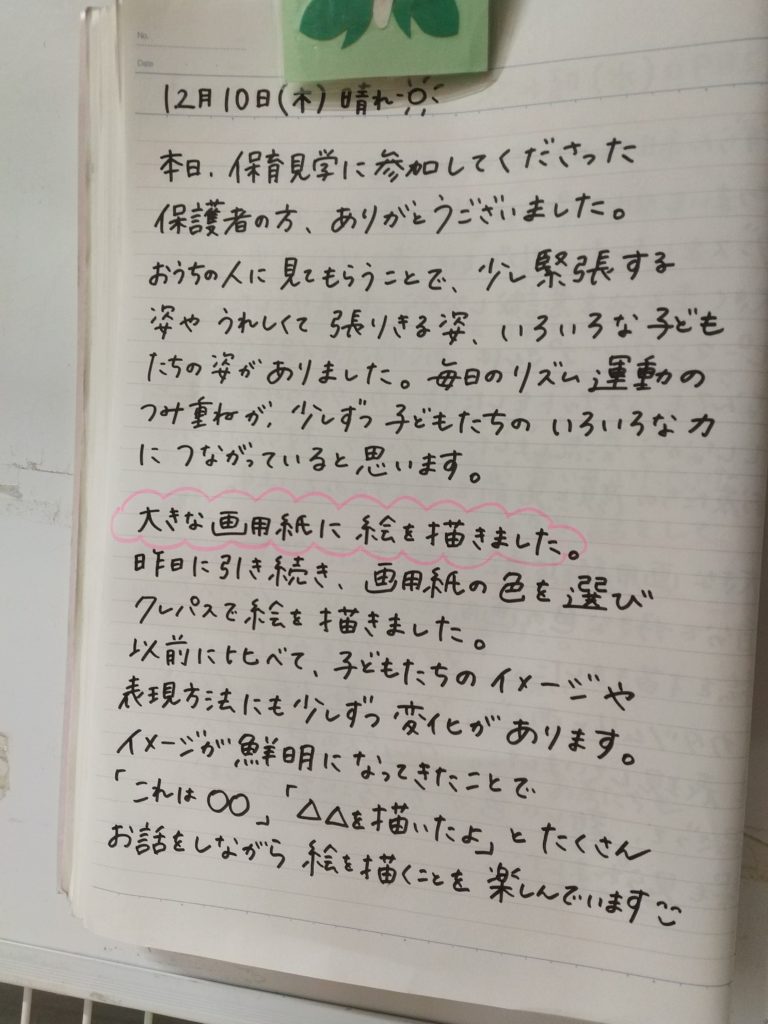 No.
Date
12月10日(木) 晴れ
本日、保育見学に参加してくださった
保護者の方、ありがとうございました。
おうちの人に見てもらうことで、少し緊張する
姿や うれしくて 張りきる姿、いろいろな子ども
たちの姿がありました。毎日のリズム運動の
つみ重ねが、少しずつ子どもたちの いろいろな力
に つながっていると思います。
大きな画用紙に 絵を描きました。
昨日に引き続き、画用紙の色を選び
クレパスで絵を描きました。
以前に比べて、子どもたちの イメージや
表現方法にも少しずつ変化があります。
イメージが鮮明になってきたことで
「これは〇〇」「△△を描いたよ」と たくさん
お話をしながら 絵を描くことを 楽しんでいます